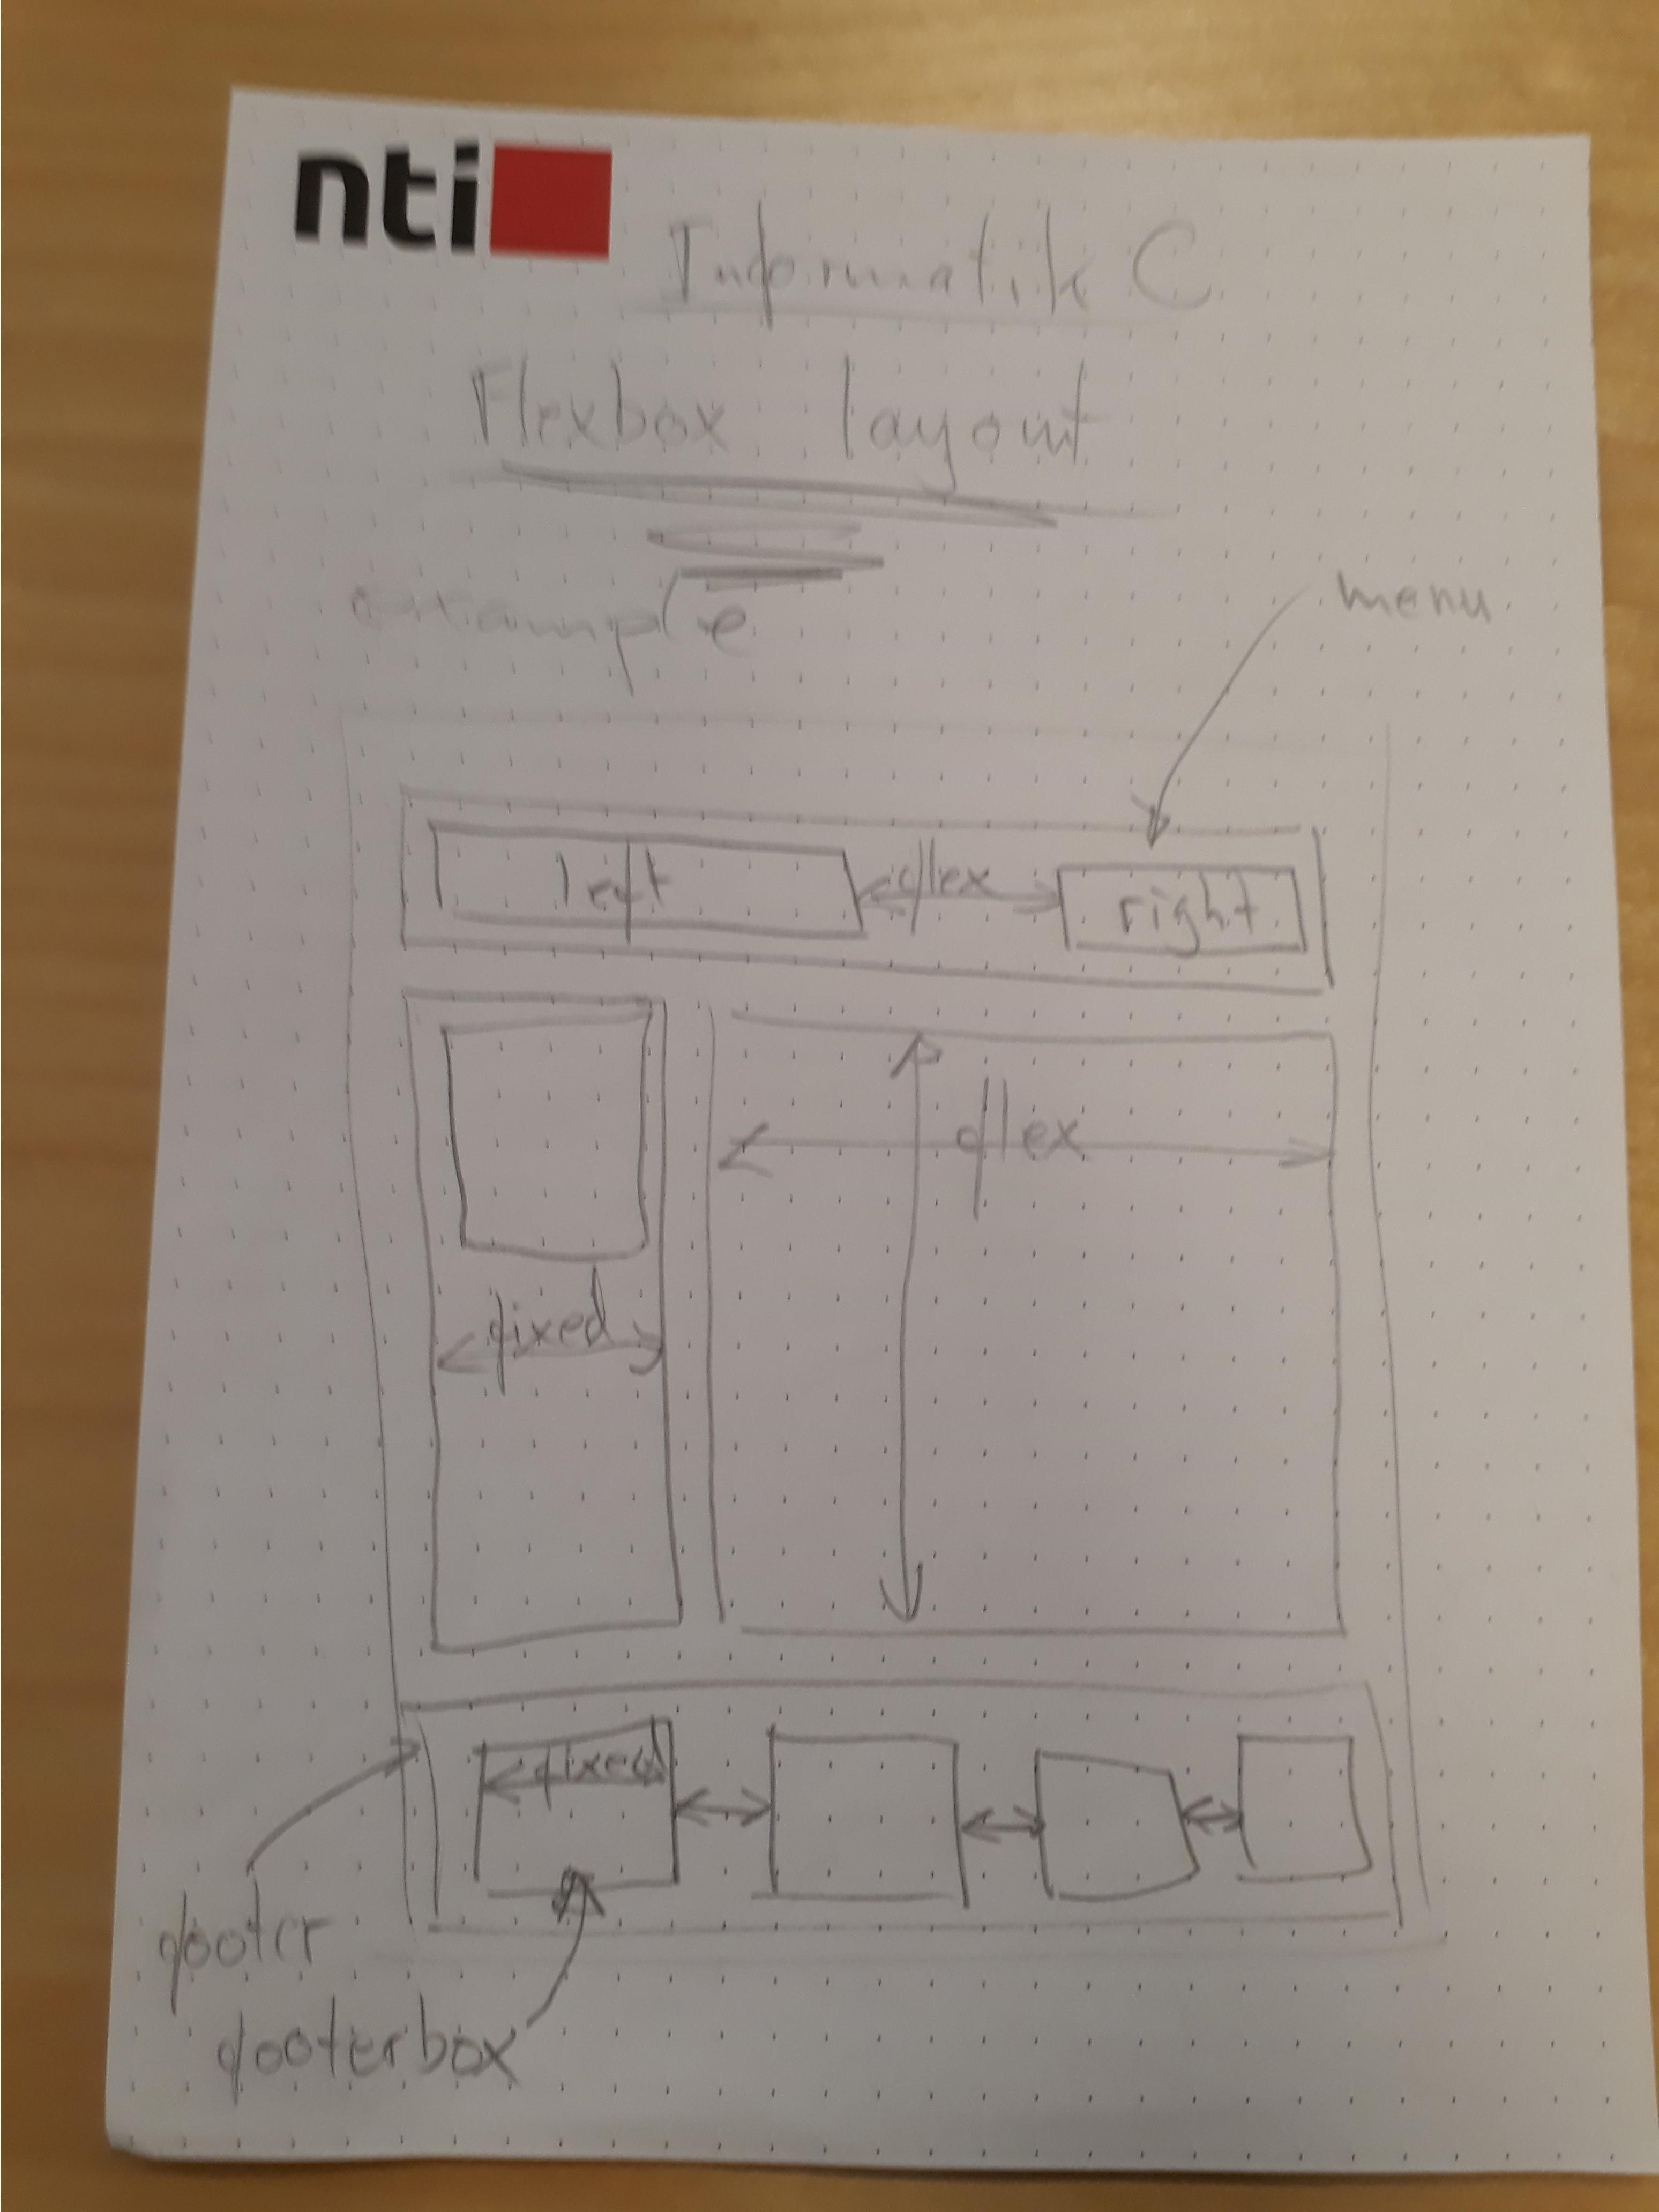 nti
Informatik C
Flexbox layout
example
menu
left
flex
right
flex
fixed
fixed
footer
footerbox